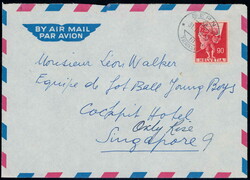 BY AIR MAIL
PAR AVION
90
HELVETIA
Monsieur Léon Walker
Equipe de Foot Ball Young Boys
Cockpit Hotel
Oxly Rise
Singapore 9